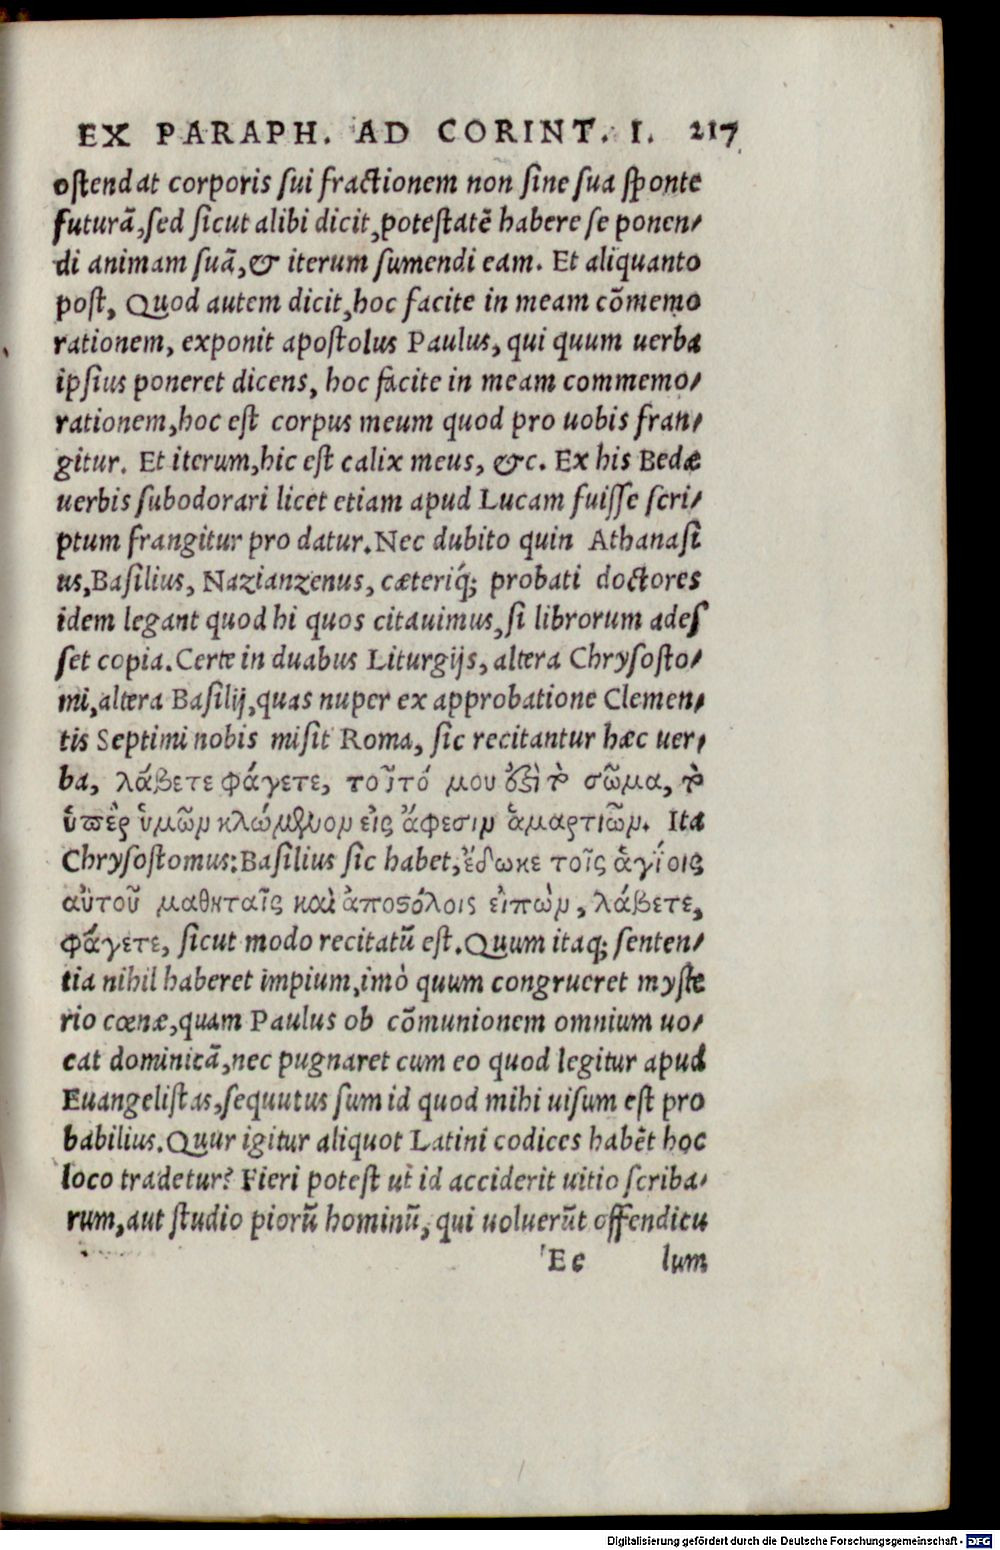 EX PARAPH. AD CORINT. I. 217
ostendat corporis sui fractionem non sine sua sponte
futurã, sed sicut alibi dicit, potestatẽ habere se ponen-
di animam suã, & iterum sumendi eam. Et aliquanto
post, Quod autem dicit, hoc facite in meam cõmemo
rationem, exponit apostolus Paulus, qui quum uerba
ipsius poneret dicens, hoc facite in meam commemo-
rationem, hoc est corpus meum quod pro uobis fran-
gitur. Et iterum, hic est calix meus, &c. Ex his Bedæ
uerbis subodorari licet etiam apud Lucam fuisse scri-
ptum frangitur pro datur. Nec dubito quin Athanasi
us, Basilius, Nazianzenus, cæteriq́; probati doctores
idem legant quod hi quos citauimus, si librorum ades
set copia. Certe in duabus Liturgijs, altera Chrysosto-
mi, altera Basilij, quas nuper ex approbatione Clemen-
tis Septimi nobis misit Roma, sic recitantur hæc uer-
ba, λάβετε φάγετε, τοῦτό μου ἐστὶ τὸ σῶμα, τὸ
ὑπὲρ ὑμῶν κλώμενον εἰς ἄφεσιν ἁμαρτιῶν. Ita
Chrysostomus: Basilius sic habet, ἔδωκε τοῖς ἁγίοις
αὐτοῦ μαθηταῖς καὶ ἀποστόλοις εἰπὼν, λάβετε,
φάγετε, sicut modo recitatũ est. Quum itaq; senten-
tia nihil haberet impium, imò quum congrueret myste
rio cœnæ, quam Paulus ob cõmunionem omnium uo-
cat dominicã, nec pugnaret cum eo quod legitur apud
Euangelistas, sequutus sum id quod mihi uisum est pro
babilius. Quur igitur aliquot Latini codices habẽt hoc
loco tradetur? Fieri potest ut id acciderit uitio scriba-
rum, aut studio piorũ hominũ, qui uoluerũt offendicu
Ee lum
Digitalisierung gefördert durch die Deutsche Forschungsgemeinschaft - DFG